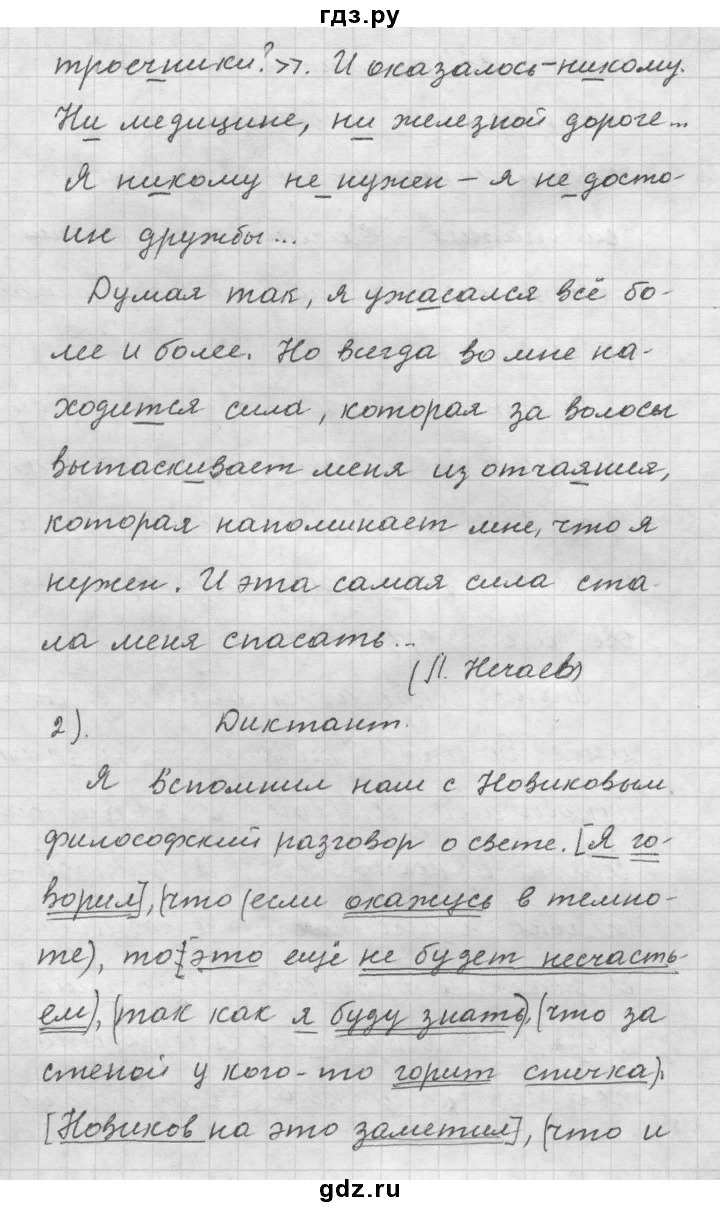 гдз.ру
троечники?». И оказалось-никому.
Ни медицине, ни железной дороге...
Я никому не нужен – я не досто-
ин дружбы...
Думая так, я ужасался всё бо-
лее и более. Но всегда во мне на-
ходится сила, которая за волосы
вытаскивает меня из отчаяния,
которая напоминает мне, что я
нужен. И эта самая сила ста-
ла меня спасать...
(П. Нечаев)
2). Диктант.
Я вспомнил наш с Новиковым
философский разговор о свете. [Я го-
ворил], (что (если окажусь в темно-
те), то [это ещё не будет несчасть-
ем), (так как я буду знать), (что за
стеной у кого-то горит спичка).
[Новиков на это заметил], (что и
gdz.ru